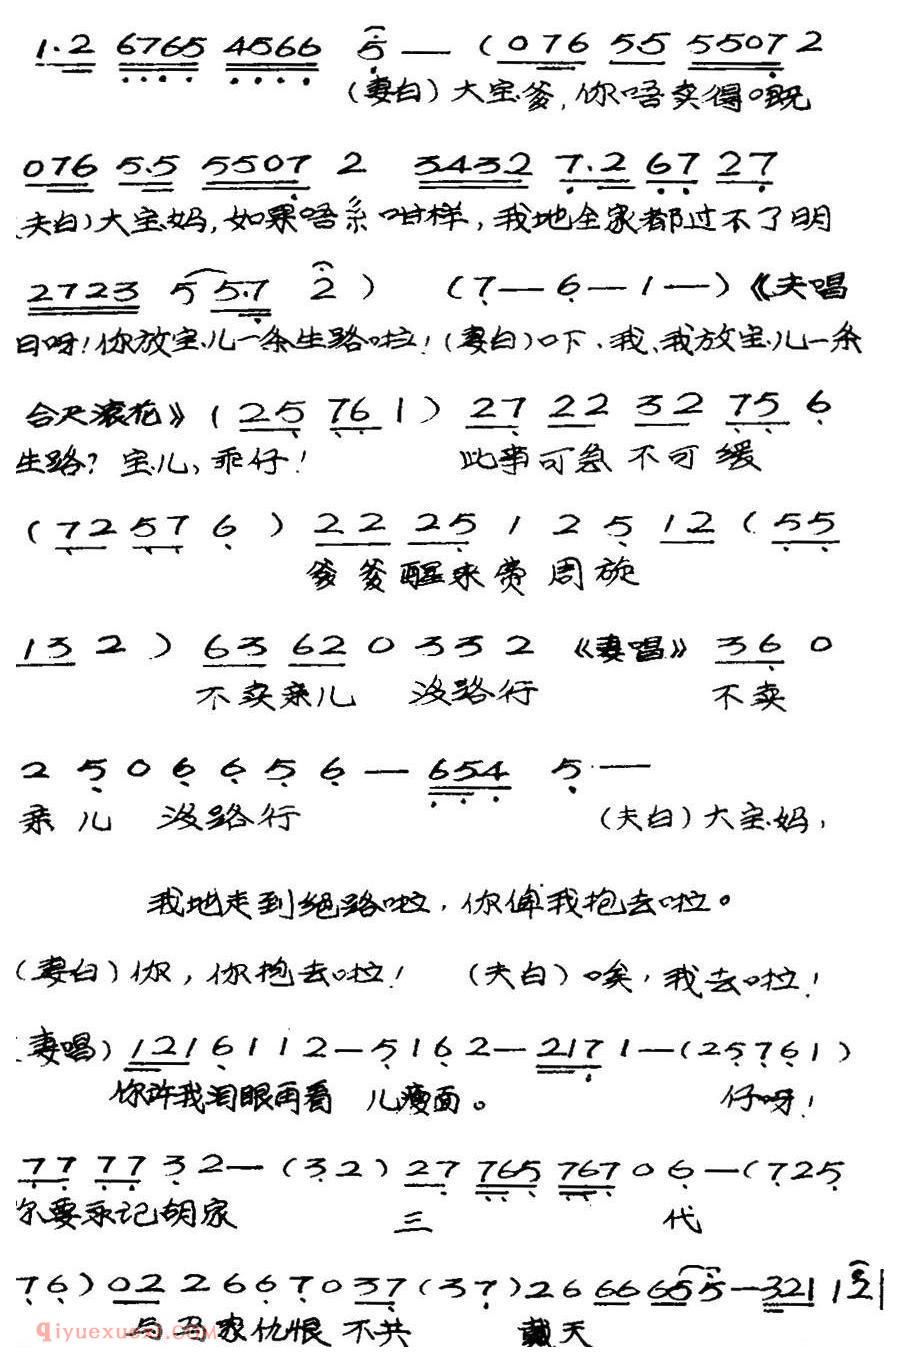 1.2 6765 4566 5 — (076 55 5507 2
(妻白)大宝爹,你唔卖得嘅
076 5.5 5507 2 3432 7.2 67 27
夫白)大宝妈,如果唔系咁样,我地全家都过不了明
2723 5 5.7 2 ) (7 — 6 — 1 —)《夫唱
日呀!你放宝儿一条生路啦!(妻白)吓、我、我放宝儿一条
合尺滚花》(25 76 1) 27 22 32 75 6
生路?宝儿、乖仔! 此事可急不可缓
(72 57 6 ) 22 25 1 2 5 12 (55
爹爹醒来费周旋
13 2 ) 63 62 0 3 3 2 《妻唱》 36 0
不卖亲儿 没路行 不卖
2 5 0 6 6 5 6 — 654 5 —
亲儿 没路行 (夫白)大宝妈,
我地走到绝路啦,你俾我抱去啦。
(妻白)你,你抱去啦! (夫白)唉,我去啦!
妻唱) 1216112—5162—2171—(25761)
你许我泪眼再看 儿瘦面。 仔呀!
77 77 32—(32) 27 765 767 0 6—(725
你要永记胡家 三 代
76) 02 26670 37 (37) 26 66655—321 12
与马家仇恨不共 戴天
qiyuexuexi.com